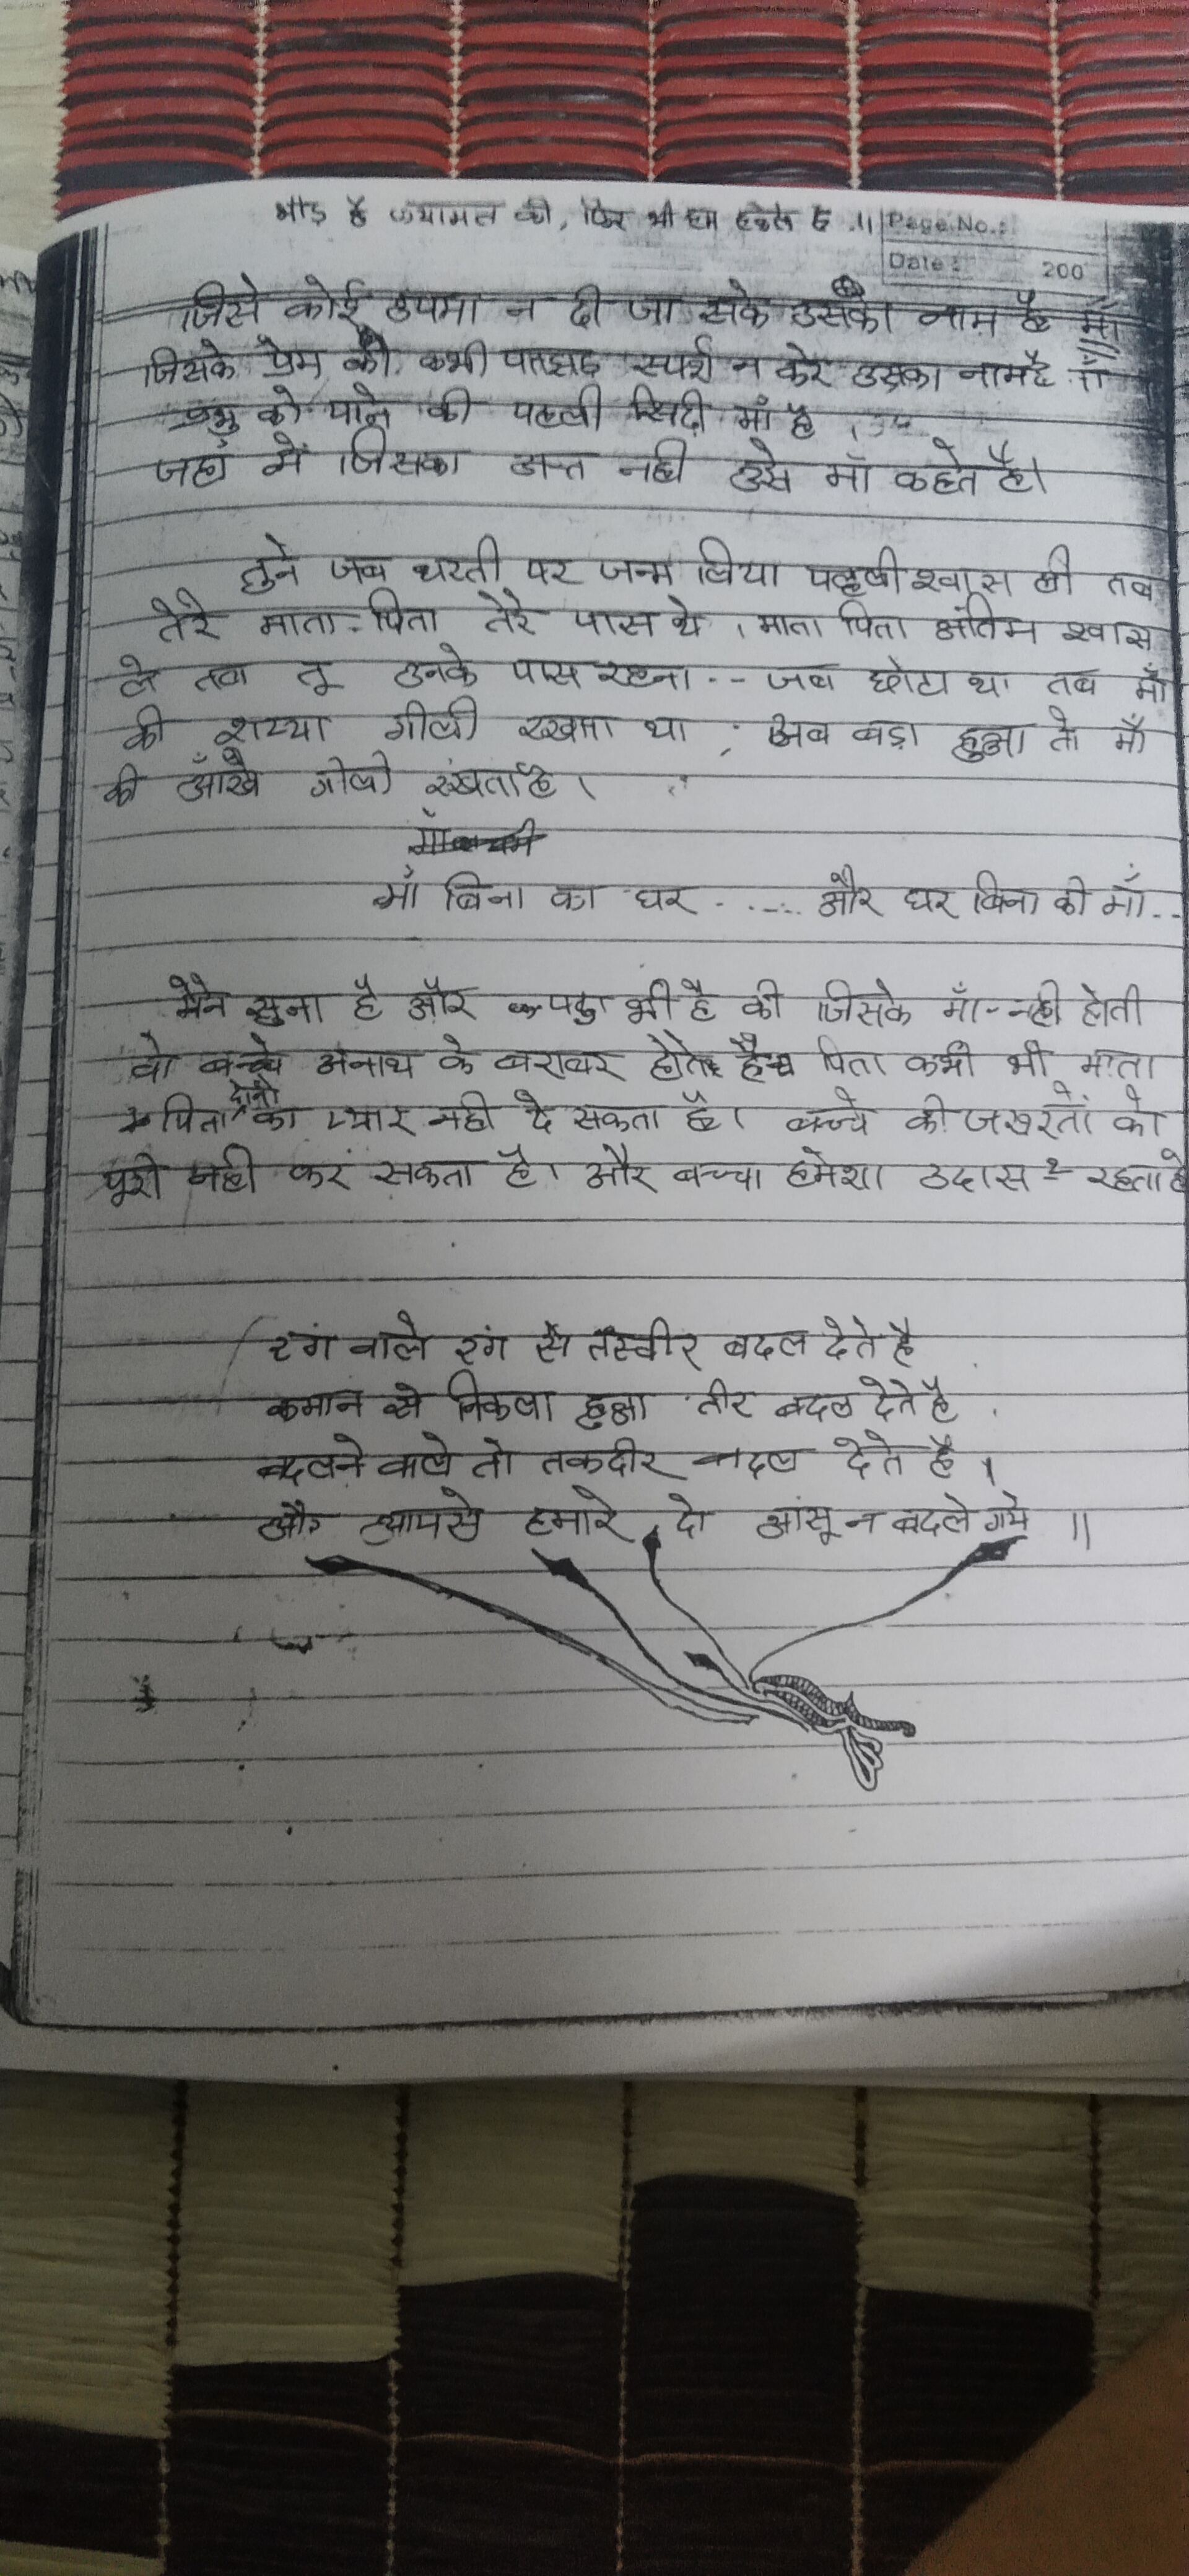 भीड़ है कयामत की, फिर भी हम अकेले है ।।
Page No.:
Date: 200
जिसे कोई उपमा न दी जा सके उसका नाम है माँ
जिसके प्रेम को कभी पतझड़ स्पर्श न करे उसका नाम है माँ
प्रभु को पाने की पहली सिढी माँ है ।
जहाँ में जिसका अन्त नही उसे माँ कहते है।
तुने जब धरती पर जन्म लिया पहली श्वास ली तब
तेरे माता-पिता तेरे पास थे । माता पिता अंतिम श्वास
ले तब तू उनके पास रहना -- जब छोटा था तब माँ
की शय्या गीली रखता था ; अब बड़ा हुआ तो माँ
की आँखे गीली रखता है ।
माँ बिना का घर ..... और घर बिना की माँ..
मेने सुना है और पढा भी है की जिसके माँ नही होती
वो बच्चे अनाथ के बराबर होते है पिता कभी भी माता
पिता दोनो का प्यार नही दे सकता है। बच्चे की जरुरतों को
पूरी नही कर सकता है। और बच्चा हमेशा उदास २ रहता है
रंग वाले रंग से तस्वीर बदल देते है
कमान से निकला हुआ तीर बदल देते है
बदलने वाले तो तकदीर बदल देते है ।
और आपसे हमारे दो आंसू न बदले गये ॥